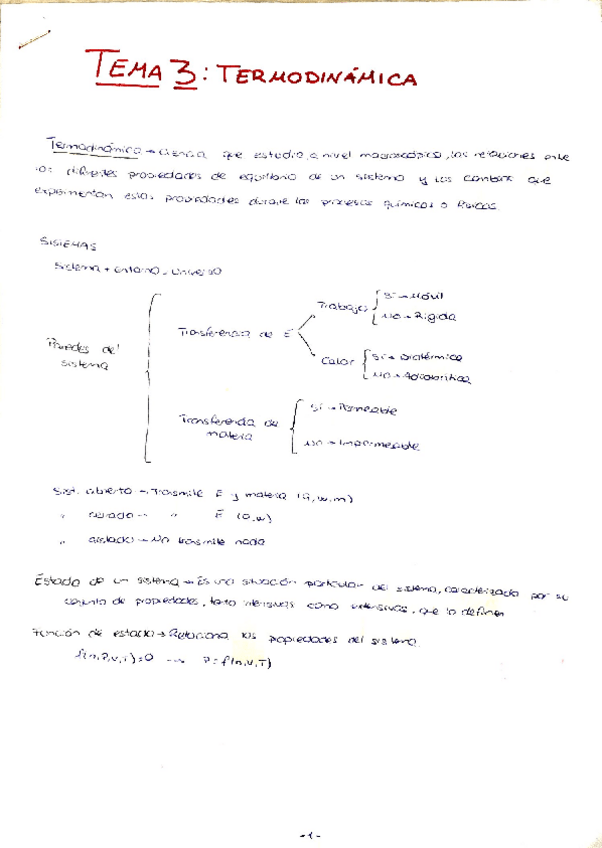 TEMA 3: TERMODINÁMICA
Termodinámica → ciencia que estudia, a nivel macroscópico, las relaciones entre
las diferentes propiedades de equilibrio de un sistema y los cambios que
experimentan estas propiedades durante los procesos químicos o físicos.
SISTEMAS
Sistema + entorno = Universo
Paredes del sistema
Transferencia de E
Trabajo
Sí → Móvil
No → Rígida
Calor
Sí → Diatérmica
No → Adiabática
Transferencia de materia
Sí → Permeable
No → Impermeable
Sist. abierto → Trasmite E y materia (Q, w, m)
" cerrado → " E (Q, w)
" aislado → No transmite nada
Estado de un sistema → Es una situación particular del sistema, caracterizado por su
conjunto de propiedades, tanto intensivas como extensivas, que lo definen
Función de estado → Relaciona las propiedades del sistema
f(n,P,V,T)=0 → P=f(n,V,T)
-1-